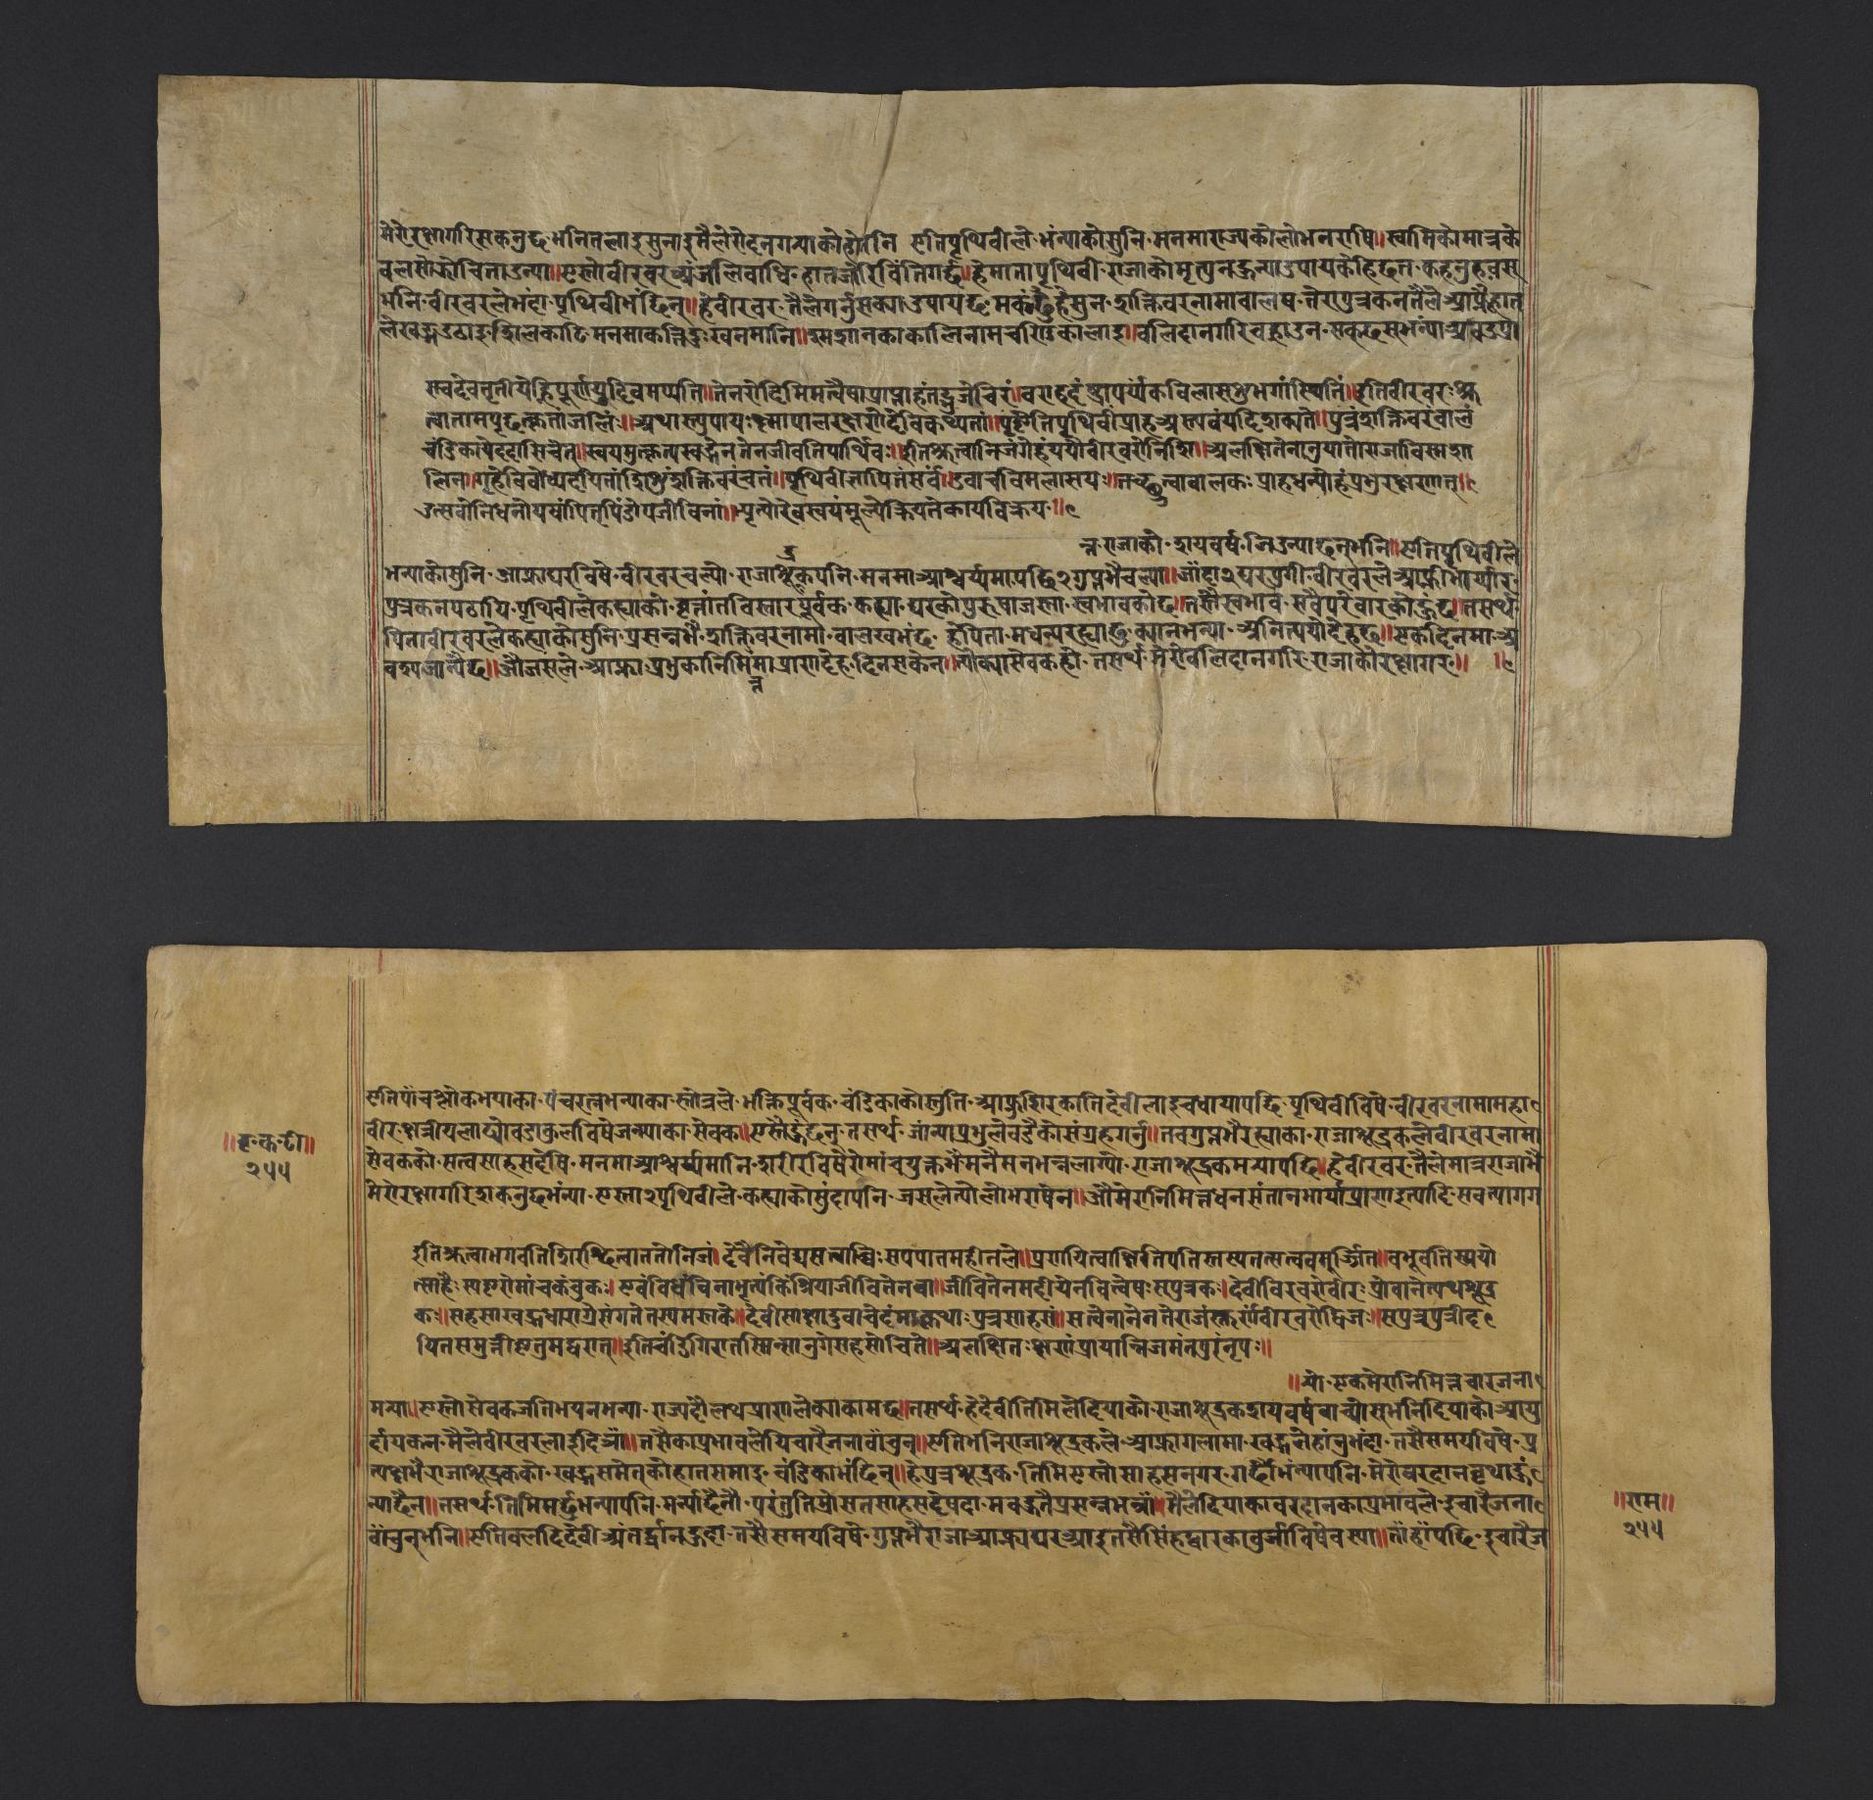 मेरोरक्षागरिसकनुछ भनितलाइसुनाइमैलेरोदनगर्‍याकोहोभनि एतिपृथिवीले भंन्याकोसुनि मनमाराज्यकोलोभनराषि॥स्वामिकोमात्रके
वलसोक्रोचिताउन्या॥एस्तोवीरवरअंजलिवाधि हातजोरिविंतिगर्छ॥हेमातापृथिवी राजाकोमृत्युनहुन्याउपायकेहिछन कहनुहवस्
भनि वीरवरलेभंदा पृथिवीभंछिन्॥हेवीरवर तैलेगर्नुसक्याउपायछ मकहंछुसुन शक्तिवरनामावालष तेरापुत्रकनतैले आफ्नैहात
लेखड्गउठाइशिलकाटि मनमाकत्तिदुःखनमानि॥स्मशानकाकालिनामचण्डिकालाइ॥वलिदानगरिचह्राउन सकछस्भंन्याअवदुप्रा
सचदेवतृतीयेह्निपूर्णायुर्दिवमप्यति॥तेनरोदिमिमत्वैषाप्राप्नाहंतद्भुजेचिरं॥वराहदंष्ट्रापर्यंकविलासशुभगांस्थितिं॥इतिवीरवरःश्रु
त्वातामपुछत्कृतांजलिः॥अथास्त्युपायःक्ष्मापालरक्षणेदेविकथ्यतां॥पृष्टेतिपृथिवीप्राहअस्त्यवंयदिशक्यते॥पुत्रंशक्तिवरंवालं
चंडिकायैददासिचेत्॥स्वयमुत्कृत्यखड्गेनतेनजीवतिपार्थिवः॥इतिश्रुत्वानिजंगेहंययौवीरवरोनिशि॥अलक्षितेनानुयातोराजाविस्मशा
लिना॥गृहेविवोध्यदयितांशिशुंशक्तिवरंचतं॥पृथिवीज्ञापितंसर्वं॥उवाचविमलासयः॥तच्छ्रुत्वावालकःप्राहधन्योहंप्रभुरक्षणात्॥
उत्सवोनिधनोयषांपितृपिंडोपजीविनां॥भृत्योरेवस्वयंमूल्यैःक्रियतेकायविक्रयः॥
न्न राजाको शयवर्ष जिउन्याछन्भनि॥एतिपृथिवीले
भन्याकोसुनि आफ्नाघरविषे वीरवरचल्यो राजाशूद्रकपनि मनमाआश्चर्यमापछि२गुप्तभैचल्या॥जांदा२घरपुगी वीरवरले आफ्नीभार्यार
पुत्रकनपठायि पृथिवीलेकह्याको वृत्तांतविस्तारपूर्वक कह्या घरकोपुरुषाजस्ता स्वभावकोछ॥तस्तैस्वभाव सवैपरिवारकोहुंछ॥तसर्थ
पितावीरवरलेकह्याकोसुनि प्रसन्नभै शक्तिवरनामा वालखभंछ हेपिता मधन्यरह्याछु क्यानभन्या अनित्ययोदेहछ॥एकदिनमा अ
वश्यजान्यैछ॥औजसले आफ्ना प्रभुकानिमित्तमा प्राणदेह दिनसकेन॥त्योक्यासेवकहो तसर्थ मेरोवलिदानगरि राजाकोरक्षागर॥
एतिपांचश्लोकभयाका पंचरत्नभन्याका स्तोत्रले भक्तिपूर्वक चंडिकाकोस्तुति आफ्नुशिरकाटिदेवीलाइचघायापछि पृथिवीविषे वीरवरनामामहा
वीरक्षत्रीयलाघ्यो वडाकुलविषेजन्म्याका सेवक॥एस्तैहुंछन् तसर्थ जांन्याप्रभुलेवडैकोसंग्रहगर्नु॥तवगुप्तभैरह्याका राजाशूद्रकलेवीरवरनामा
सेवकको सत्वसाहसदेषि मनमाआश्चर्यमानि शरीरविषेरोमांचयुक्तभै मनैमनभन्नलाग्यो राजाशूद्रकमर्‍यापछि॥हेवीरवर तैलेमात्रराजाभै
मेरोरक्षागरिशकनुछभंन्या एस्ता२पृथिवीले कह्याकोसुंदापनि जसलेत्योलोभराषेन॥औमेरानिमित्तधनसंतानभार्याप्राणइत्यादि सवत्यागग
इतिश्रुत्वाभगवतिशिरश्छित्वाततोनिजं॥देव्यैनिवेद्यसत्वाब्धिःसपपातमहीतले॥प्रणायित्वाक्षितिपतिस्तस्यतत्सत्ववमूर्जितं॥वभूवतिस्मयो
त्साहैःस्पष्टरोमांचकंचुकः॥एवंविधंविनाभृत्यंकिंश्रियाजीवितेनवा॥जीवितेनमदीयेनवित्वेषःसपुत्रकः॥देवीविरवरोवीरःप्रोवाचेत्यथशूद्र
कः॥सहसाखड्गधारांग्रेसंगतेतस्यमस्तके॥देवीसाक्षादुवाचेदंमाकृथाःपुत्रसाहसं॥सत्वेनानेनतेराजंस्तुष्टावीरवरोद्विजः॥सपुत्रपुत्रीद
यितसमुत्तीष्ठतुमद्वरात्॥इतिचंडीगिरातस्मिन्सानुगेसहसोत्थिते॥अलक्षितःक्ष्मणंप्रायान्निजमंतपुरंनृपः॥
॥यो एकमेरानिमित्त चारजना
मर्‍या॥एस्तोसेवकजतिभयनभन्या राज्यदौलथप्राणलेक्याकामछ॥तसर्थ हेदेवीतिमिलेदियाको राजाशूद्रकशयवर्षवाच्योस्भनिदियाको आयु
र्दायकन मैलेवीरवरलाइदिञा॥तसैकाप्रभावलेयिचारैजनावांचुन्॥एतिभनिराजाशूद्रकले आफ्नागलामा खड्गलेहांन्नुभंदा तसैसमयविषे प्र
त्यक्षभैराजाशूद्रकको खड्गसमेत्कोहातसमाइ चंडिकाभंछिन्॥हेपुत्रशूद्रक तिमिएस्तोसाहसनगर गर्छौभन्यापनि मेरोवरदानवृथाहुं
न्याछैन॥तसर्थतिमिमर्छुभन्यापनि मर्न्याछैनौ परंतुतिम्रोसतसाहसदेषदा मवहुतैप्रसन्नभञां॥मैलेदियाकावरदानकाप्रभावले इचारैजना
वांचुनभनि॥एतिवलदिदेवी अंतर्द्धानहुदा तसैसमयविषे गुप्तभैराजाआफ्नाघरआइतसैसिंहद्वारकावुर्जाविषेवस्या॥ताहांपछि इचारैज
॥वृ क टी॥
२५५
॥राम॥
२५५